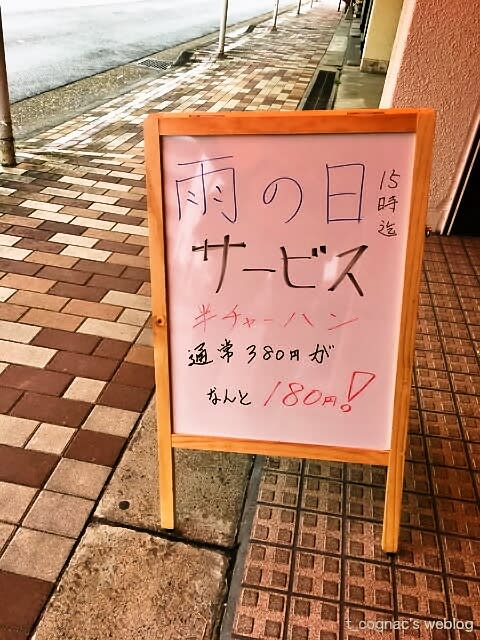 雨の日
15時迄
サービス
半チャーハン
通常380円が
なんと180円!
t.cognac's weblog